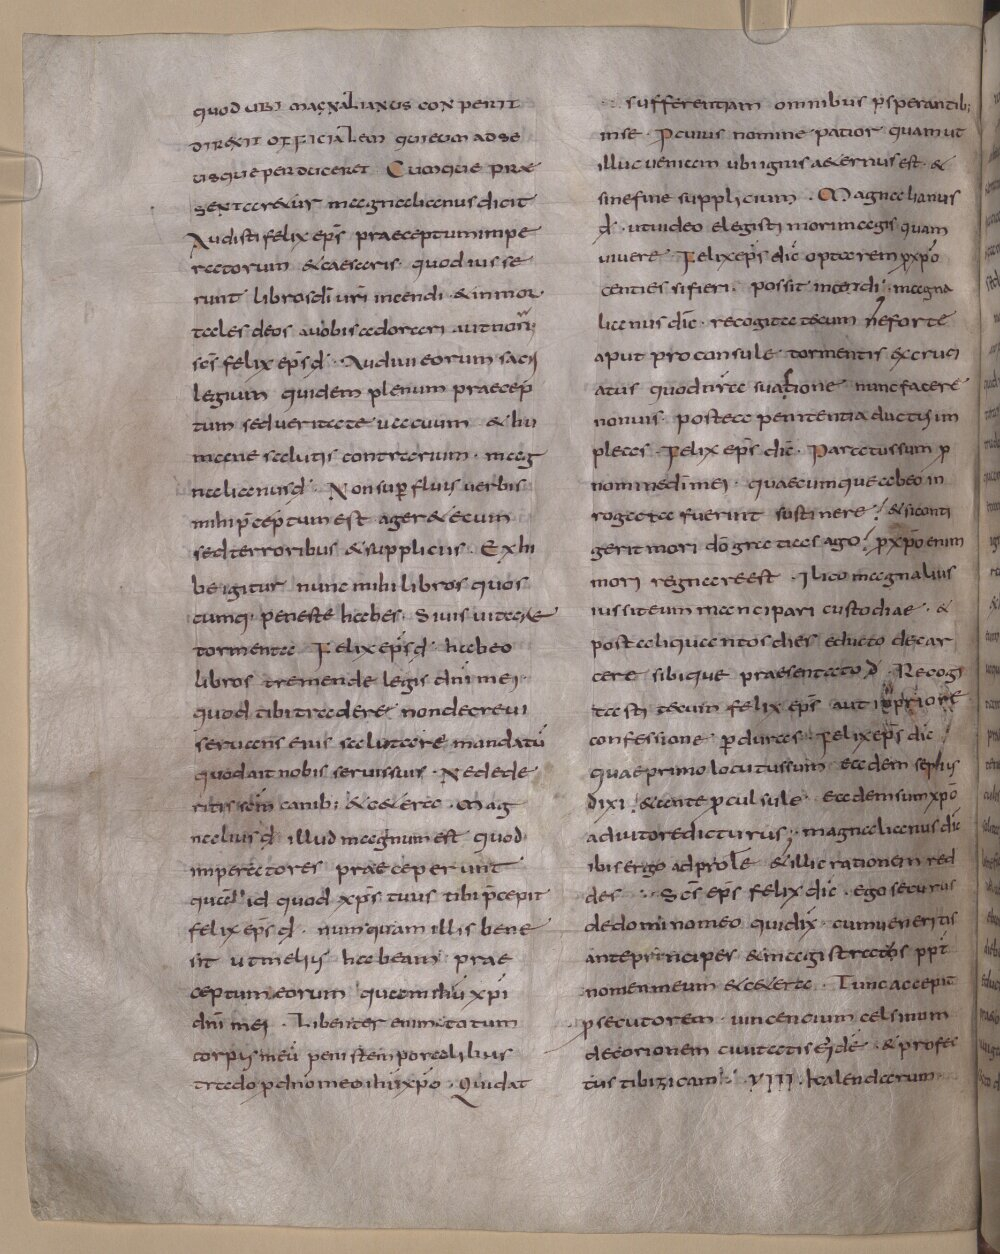 quod ubi magnalianus con perit
direxit officialem qui eum ad se
usque perduceret. Cumque prae
sentaretur magnalianus dicit
Audisti felix eps praeceptum impe
ratorum & caesaris quod iusse
runt libros di uri incendi & inmor
tales deos a uobis adorari
scs felix eps d. Audiui eorum sacri
legium quidem plenum praecep
tum sed ueritate uacuum & hu
manae salutis contrarium. mag
nalianus d. Non supfluis uerbis
mihi pceptum est ager& ecum
sed terroribus & suppliciis. Exhi
be igitur nunc mihi libros quos
cumq; penes te habes. Si uis uitare
tormenta Felix eps d. habeo
libros tremende legis dni mei.
quod tibi tradere non decreui
seruans eius salutare mandatū
quod ait nobis seruis suis. Ne dede
ritis scm canib; & cetera. Mag
nalius d illud magnum est quod
imperatores praeceperunt
quā illud quod xps tuus tibi pcepit
felix eps d. numquam illis bene
sit ut melius habeam prae
ceptum eorum quam ihu xpi
dni mei. Libenter enim totum
corpus meū penis temporalibus
trado p dno meo ihu xpo. Qui dat
sufferentiam omnibus psperantib;
in se. P cuius nomine patior quam ut
illuc ueniam ubi ignis aeternus est. &
sine fine supplicium. Magnalianus
d. ut uideo elegisti mori magis quam
uiuere Felix eps dic optarem p xpo
centies si fieri possit incendi. magna
lianus dic. recogita tecum ne forte
aput proconsule tormentis excruci
atus quod nra suasione nunc facere
non uis. postea penitentia ductus im
pleas. Felix eps dic. Paratus sum p
nomine di mei quaecumque abeo in
rogata fuerint sustinere! & si conti
gerit mori dō gratias ago! p xpo enim
mori regnare est. Ilico magnalius
iussit eum mancipari custodiae. &
post aliquantos dies educto de car
cere sibique praesentato d. Recogi
tasti tecum felix eps aut in priore
confessione pduras. Felix eps dic!
quae primo locutus sum eadem sepius
dixi. & ante pculsule eadem sum xpo
adiutore dicturus; magnalianus dic
ibis ergo ad prole & illic rationem red
des Scs eps felix dic. ego securus
de domino meo qui dix. cum ueneritis
ante principes & magistratos ppt
nomen meum & cetera. Tunc accepit
psecutorem uincencium celsinum
decorionem ciuitatis eide. & profec
tus tibizicam. VIII. kalendarum